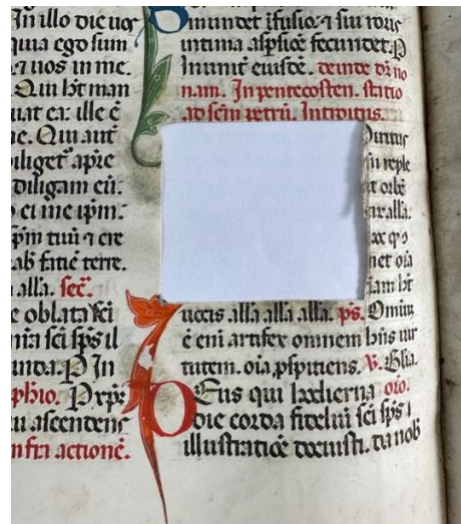 In illo die uos
quia ego sum
⁊ uos in me.
Qui hēt man
uat ea: ille ē
me. Qui aut̄
diliget' a pr̄e
diligam eū:
ei me ip̄m.
sp̄m tuū ⁊ cre
faciē terre.
alla. sec̄.
oblata sc̄i
sc̄i sp̄s il
In
xp̄s
ascendens
infra actionē.
mundet ifusio: ⁊ sui roris
intima asp̄siōe fecundet. P
eiusdē. deinde
nam. In pentecosten. statio
ad scm̄ petrū. Introitus.
reple
orbē
alla.
oīa
hēt
uocis alla alla alla. ps. Omīu
ē eni artifex omnem hn̄s uir
tutem. oīa p̄spitiens. V. Gl̄ia.
Deus qui hodierna oro.
die corda fideliū sc̄i sp̄s
illustratiōe docuisti. da nob